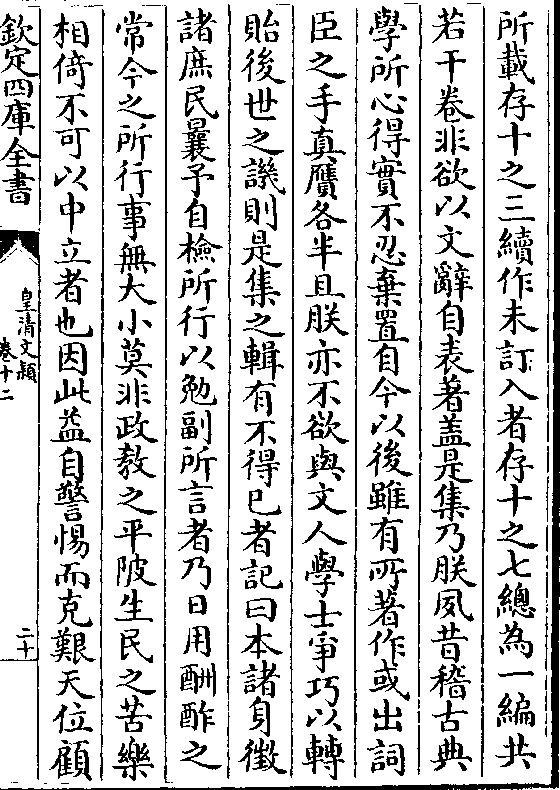 所載存十之三續作未訂入者存十之七總為一編共
若干卷非欲以文辭自表著盖是集乃朕夙昔稽古典
學所心得實不忍棄置自今以後雖有所著作或出詞
臣之手真贋各半且朕亦不欲與文人學士爭巧以轉
貽後世之譏則是集之輯有不得已者記曰本諸身徵
諸庶民曩予自檢所行以勉副所言者乃日用酬酢之
常今之所行事無大小莫非政教之平陂生民之苦樂
相倚不可以中立者也因此益自警惕而克艱天位顧
欽定四庫全書
皇清文頴
卷十二
二十